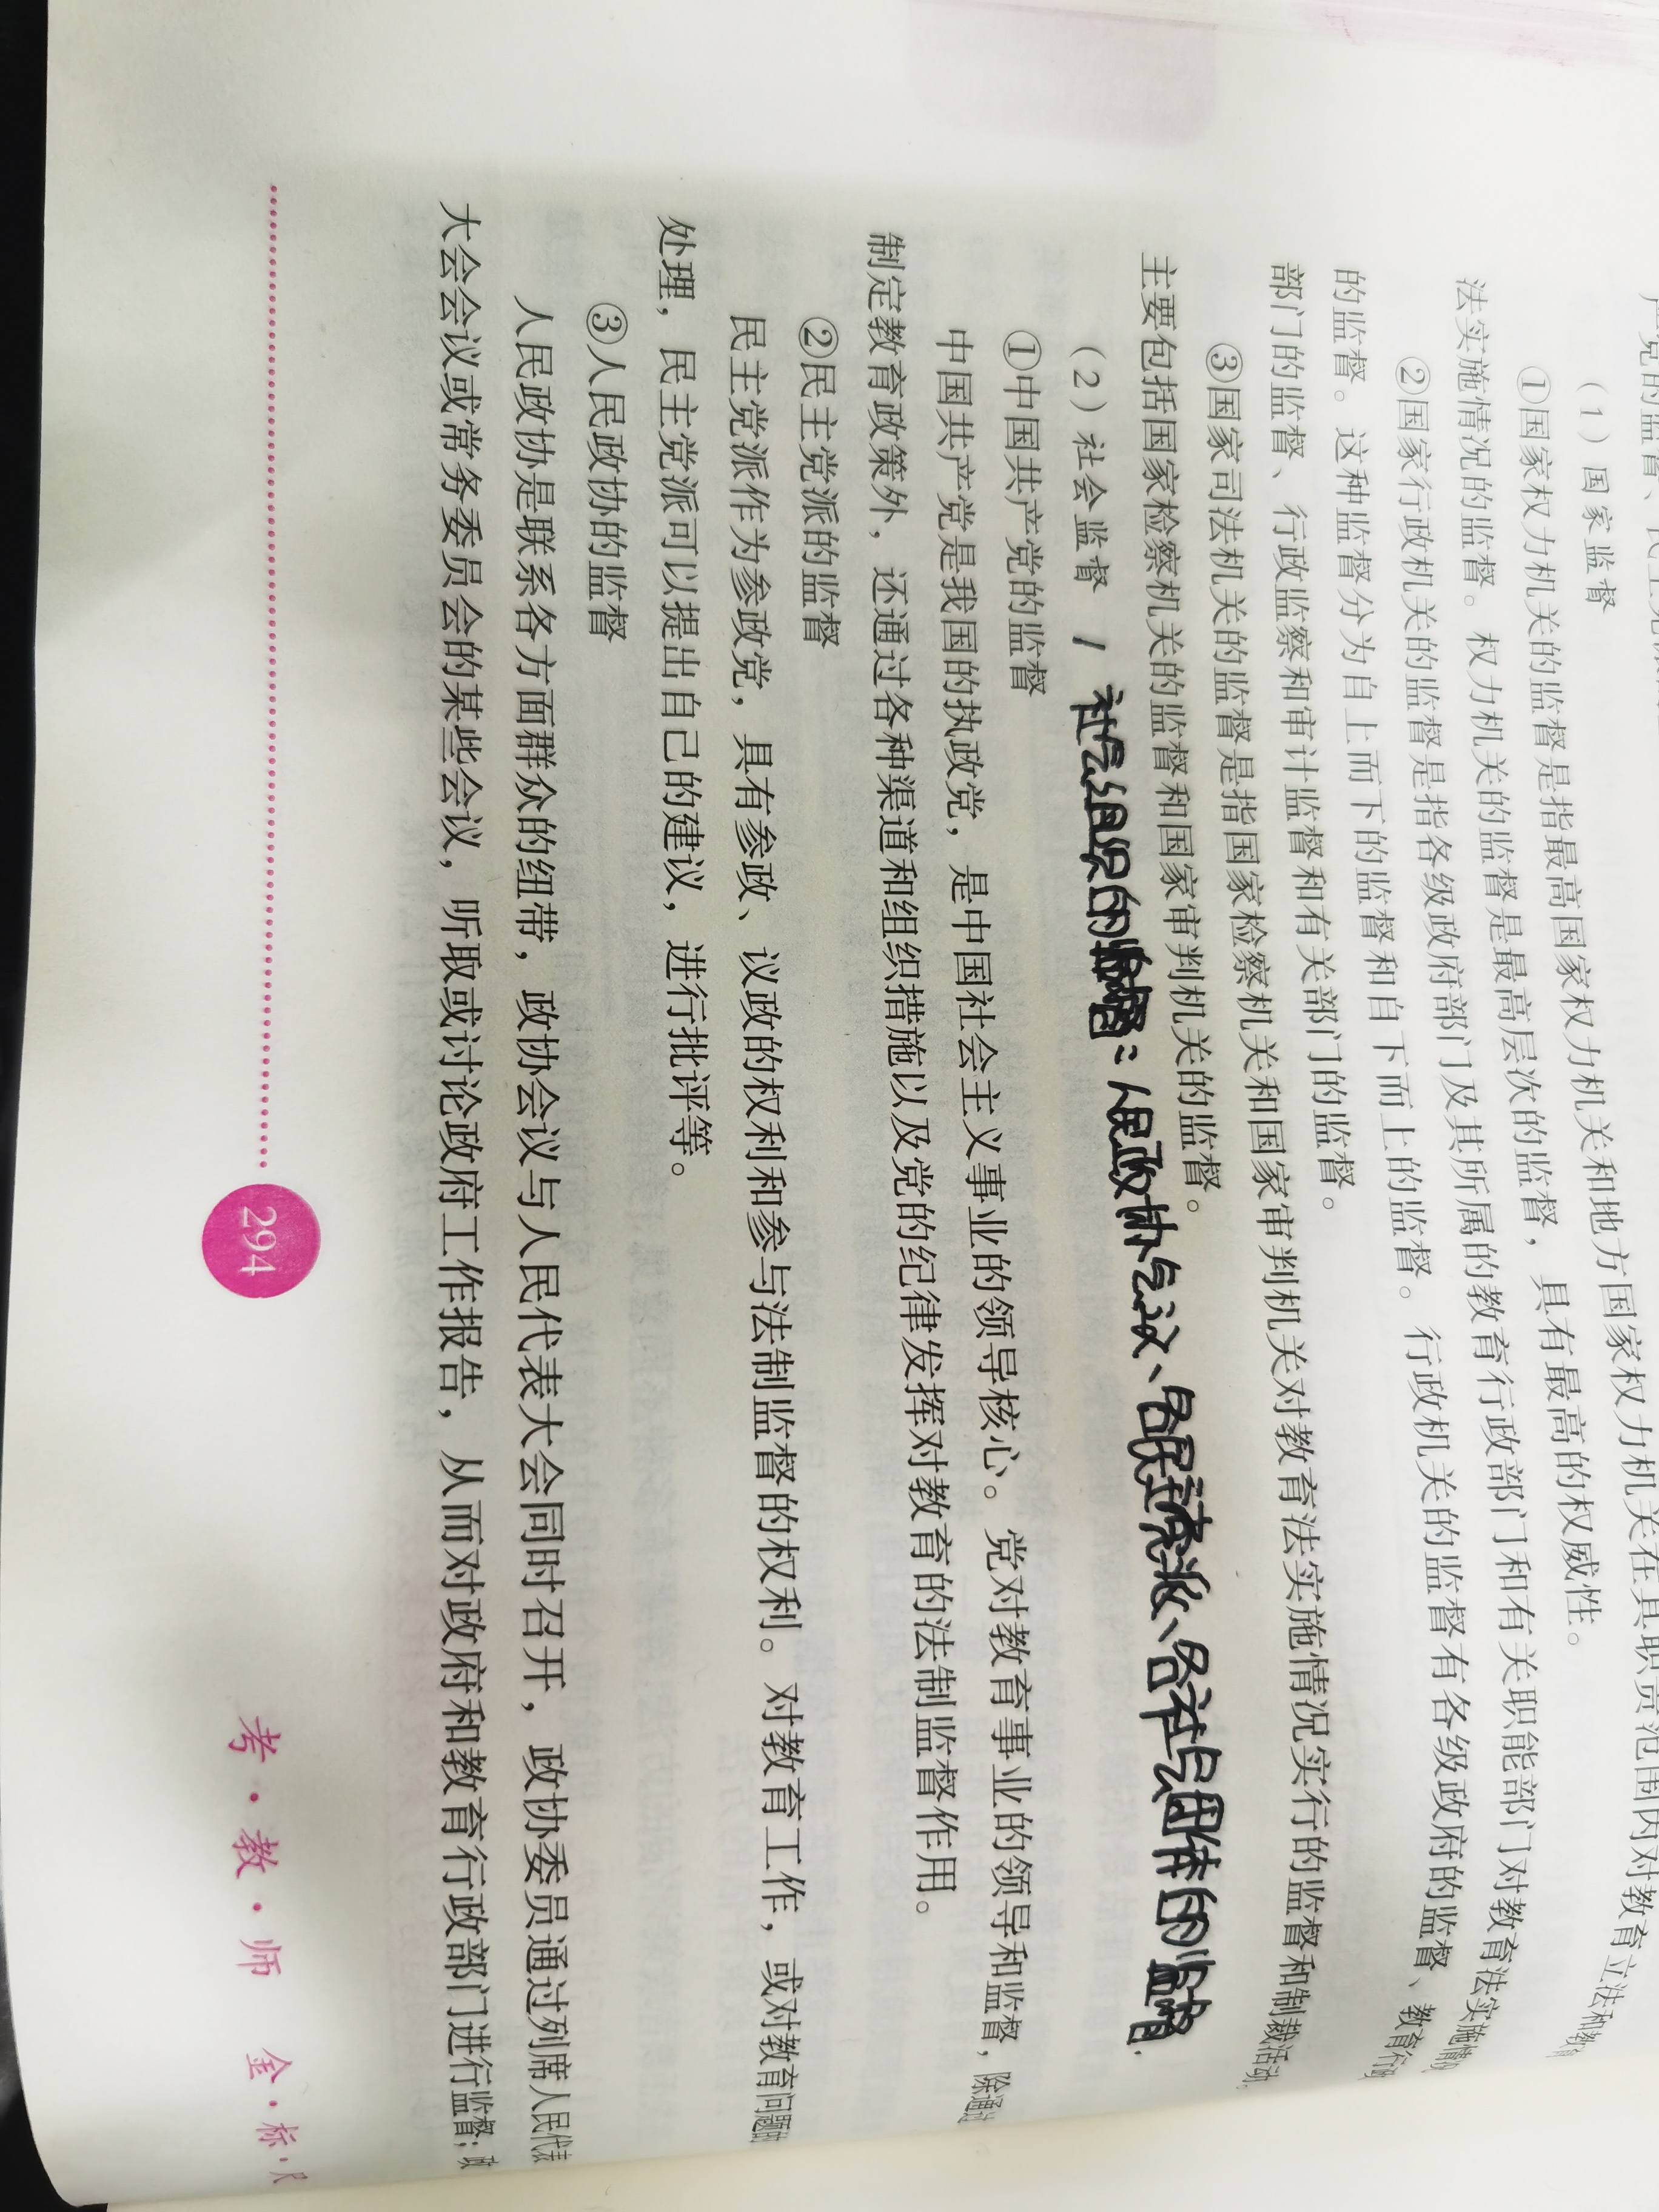 产党的监督、民主党派
（1）国家监督
①国家权力机关的监督是指最高国家权力机关和地方国家权力机关在其职责范围内对教育立法和教育
法实施情况的监督。权力机关的监督是最高层次的监督，具有最高的权威性。
②国家行政机关的监督是指各级政府部门及其所属的教育行政部门和有关职能部门对教育法实施情况
的监督。这种监督分为自上而下的监督和自下而上的监督。行政机关的监督有各级政府的监督、教育行政
部门的监督、行政监察和审计监督和有关部门的监督。
③国家司法机关的监督是指国家检察机关和国家审判机关对教育法实施情况实行的监督和制裁活动，
主要包括国家检察机关的监督和国家审判机关的监督。
（2）社会监督 / 社会组织的监督：人民政协会议、各民主党派、各社会团体的监督.
①中国共产党的监督
中国共产党是我国的执政党，是中国社会主义事业的领导核心。党对教育事业的领导和监督，除通过
制定教育政策外，还通过各种渠道和组织措施以及党的纪律发挥对教育的法制监督作用。
②民主党派的监督
民主党派作为参政党，具有参政、议政的权利和参与法制监督的权利。对教育工作，或对教育问题的
处理，民主党派可以提出自己的建议，进行批评等。
③人民政协的监督
人民政协是联系各方面群众的纽带，政协会议与人民代表大会同时召开，政协委员通过列席人民代表
大会会议或常务委员会的某些会议，听取或讨论政府工作报告，从而对政府和教育行政部门进行监督；政
294
考·教·师 金·标·尺